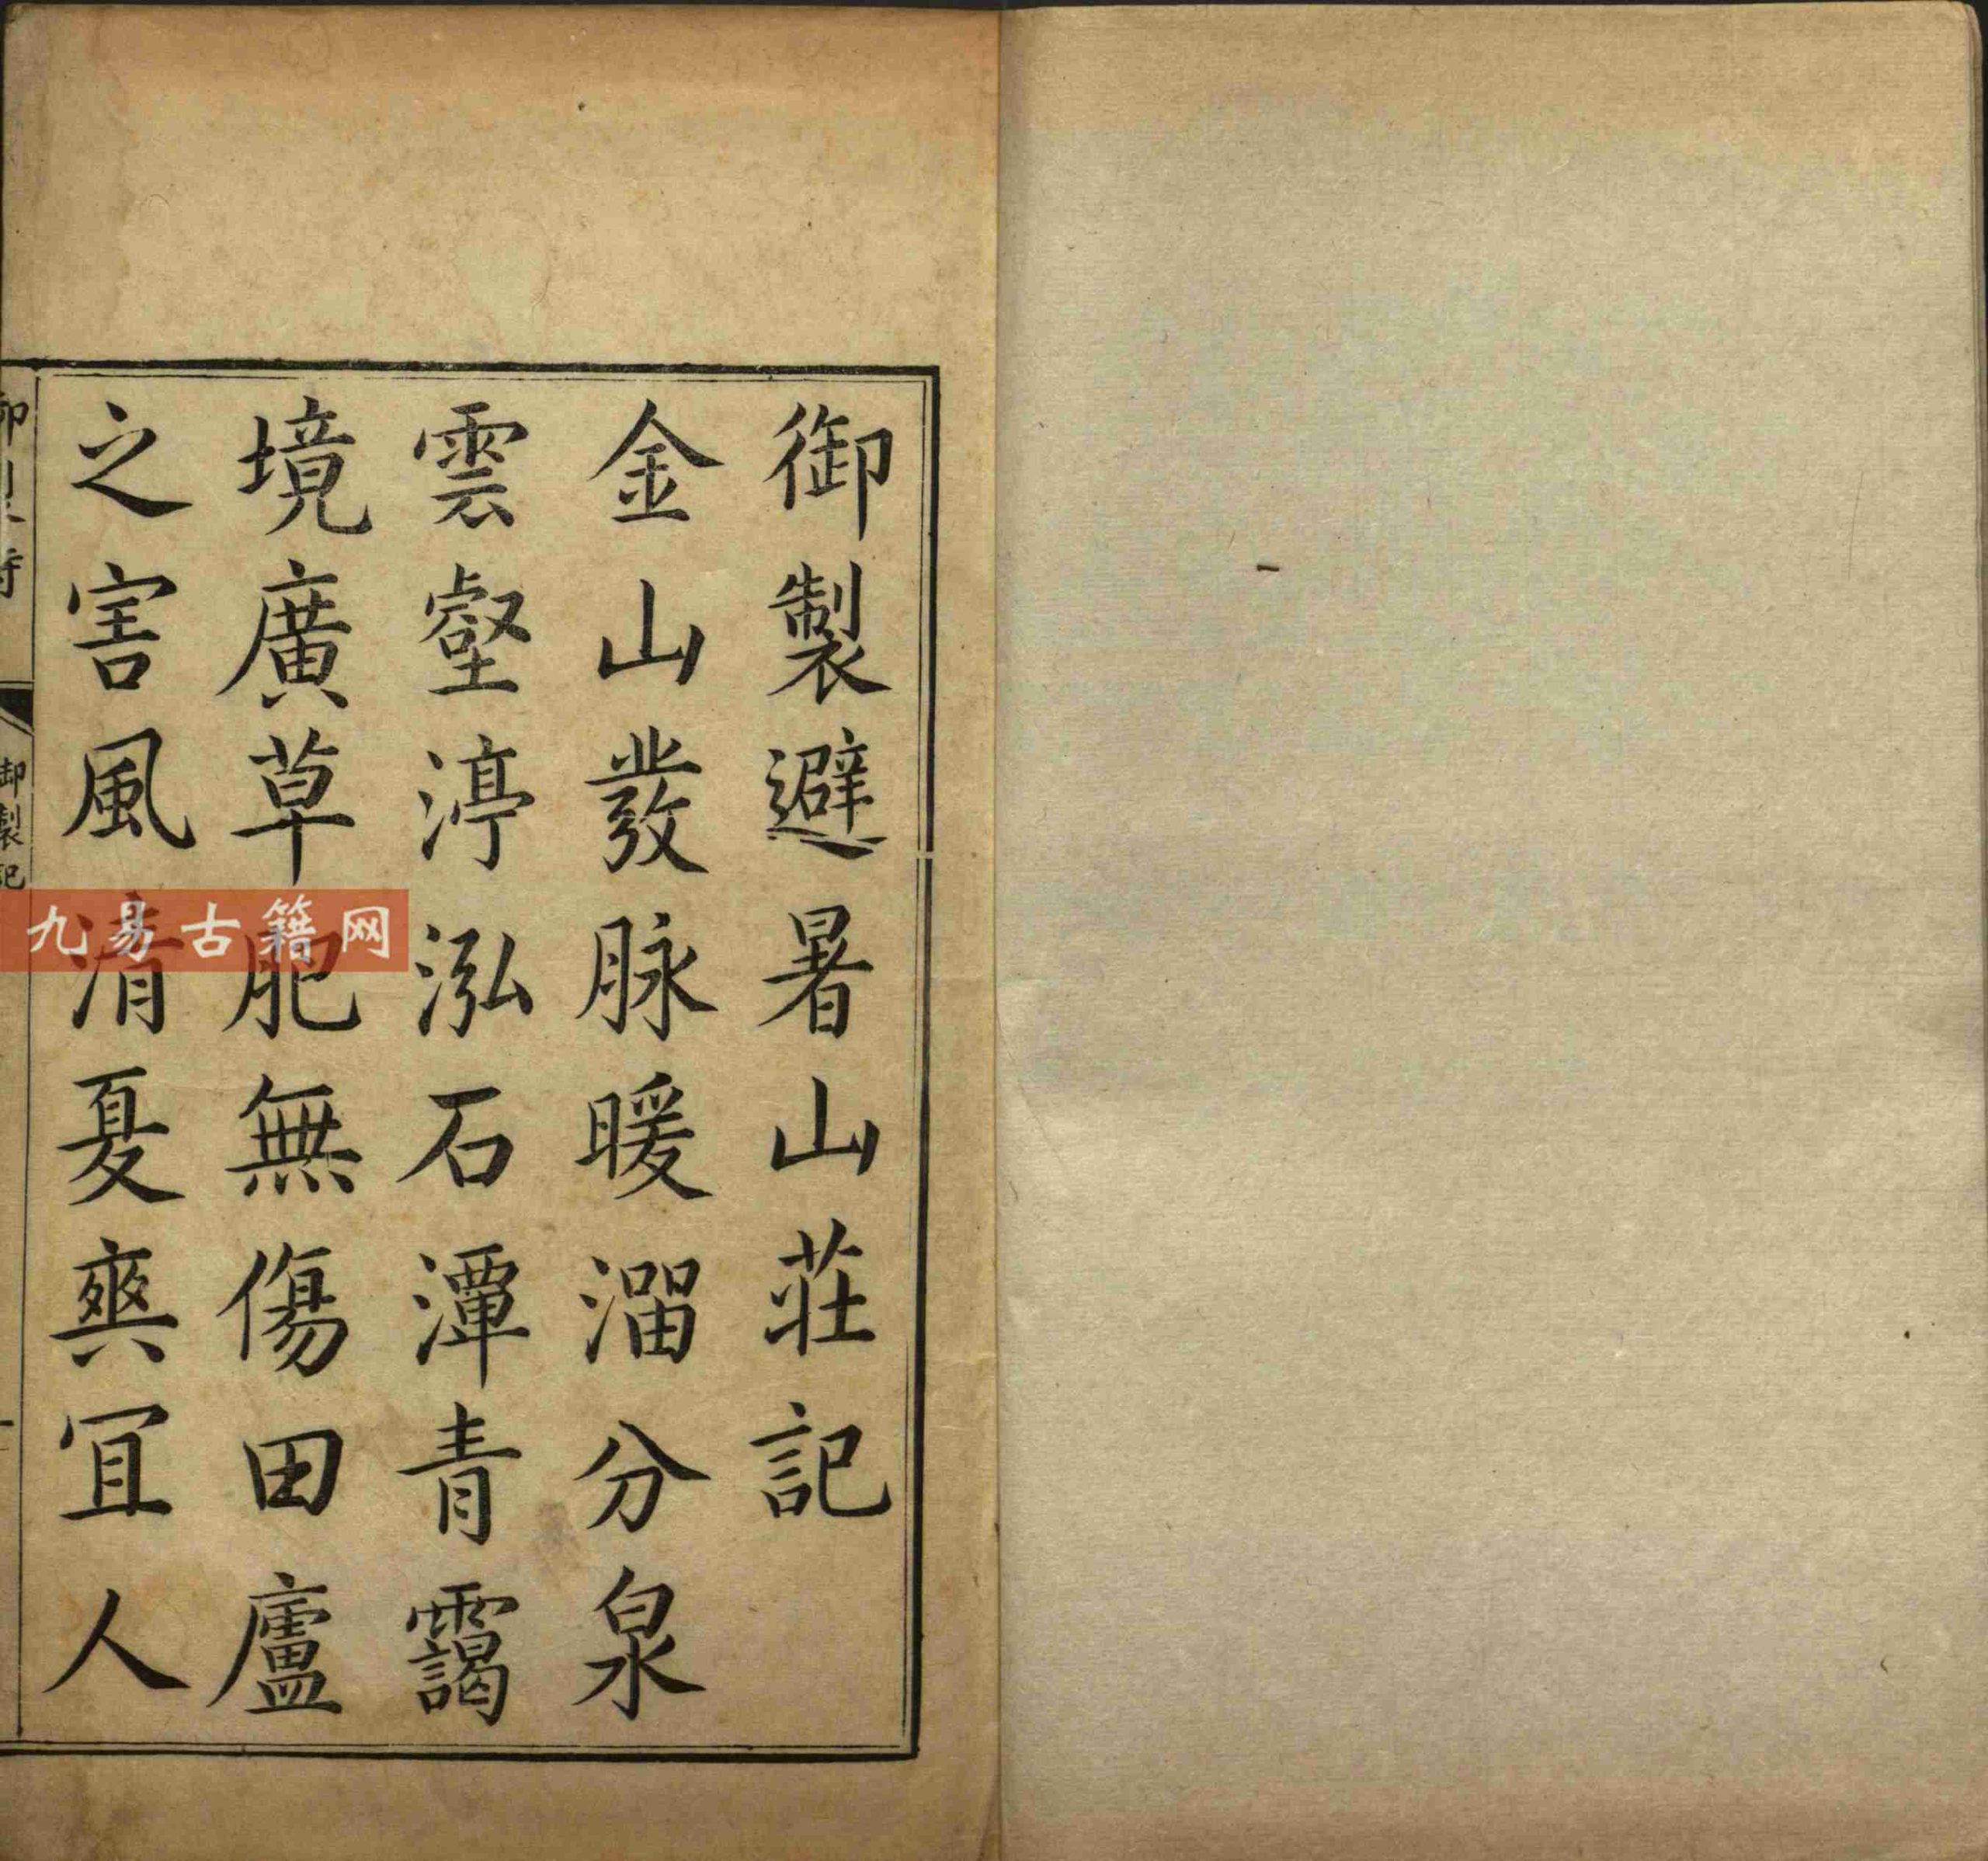 御製避暑山莊記
金山發脉暖溜分泉
雲壑渟泓石潭青靄
境廣草肥無傷田廬
之害風清夏爽宜人
御製詩
御製記
一
九易古籍网